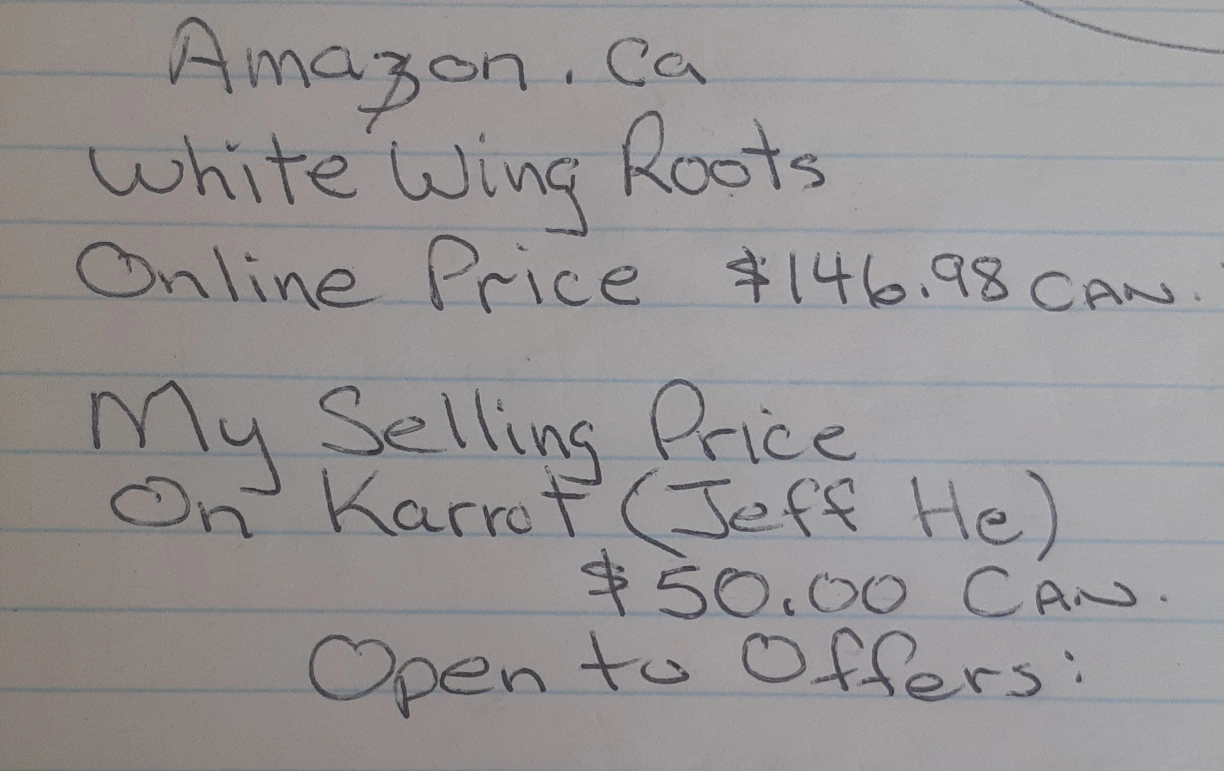 Amazon.ca
White Wing Roots
Online Price $146.98 CAN.
My Selling Price
On Karrot (Jeff He)
$50.00 CAN.
Open to Offers: